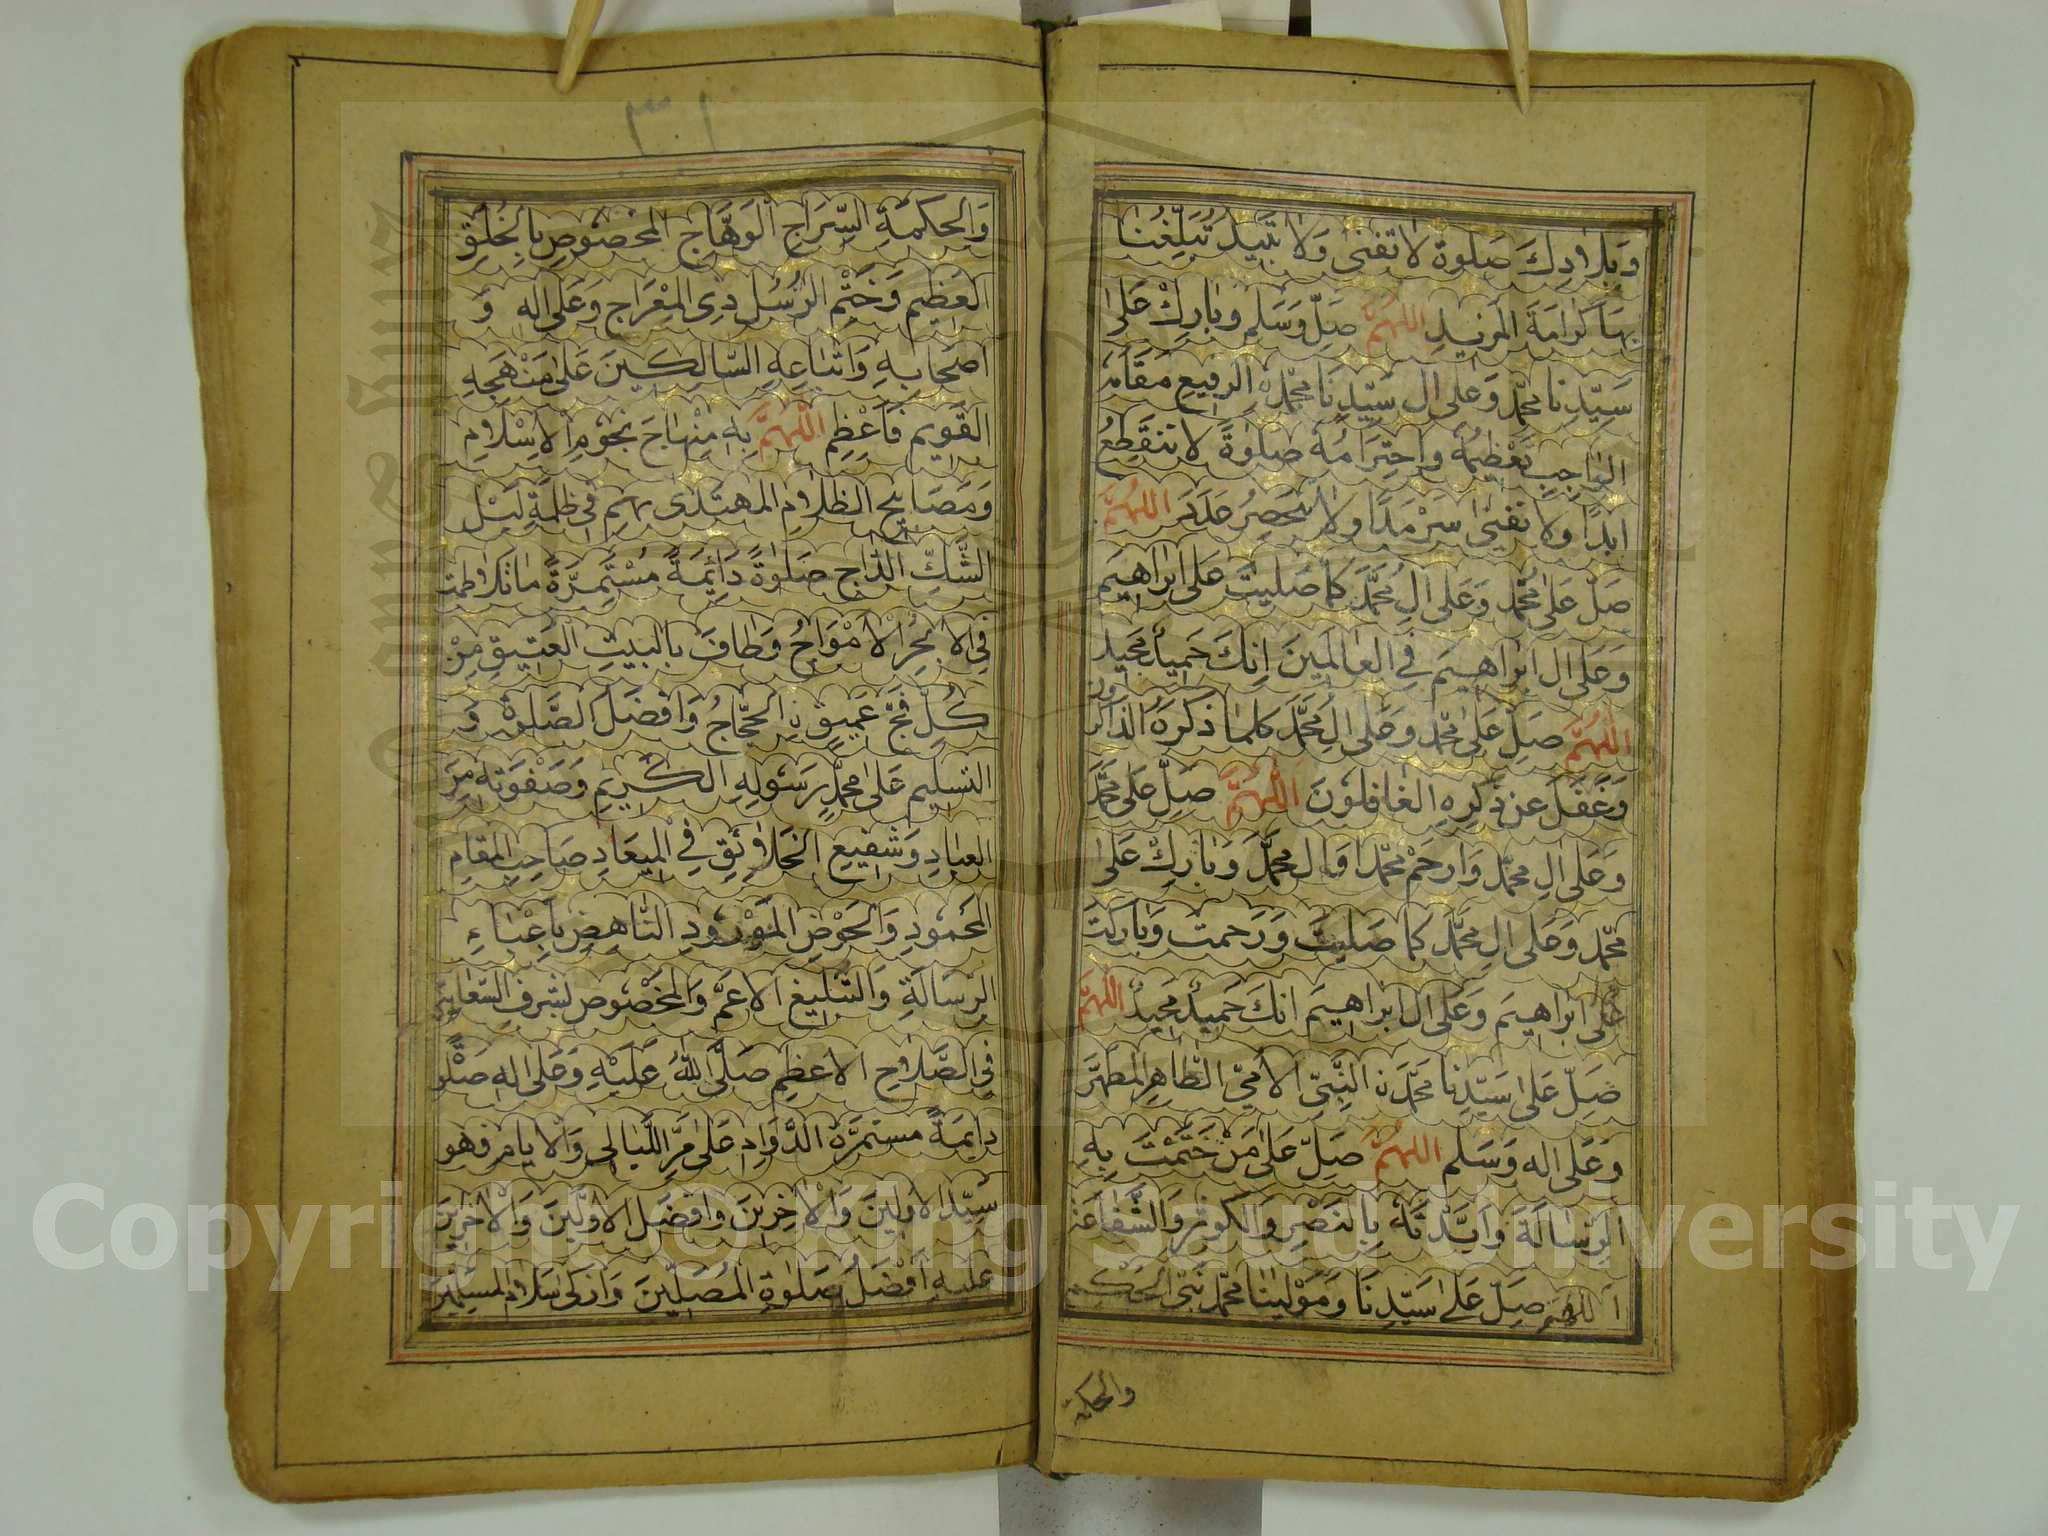 وَبِلادِكَ صَلوةً لا تفنى وَلا تَبِيدُ تُبَلِّغُنَا
بِهَا كَرامَةَ المَزيدِ اللهُمَّ صَلّ وَسَلم وبارِكْ عَلى
سَيِّدِنا محمّد وَعَلى ال سَيِّدِنَا محمّد الرفيعِ مَقَامُه
الواجِبِ تَعْظِيمُهُ واحتِرَامُهُ صَلوةً لا تنقَطِعُ
ابَدًا ولا تفنى سَرْمَدًا ولا تنحَصِرُ عَدَدَ اللهُمَّ
صَلّ عَلى مُحمّد وَعَلى الِ مُحَمَّد كمَا صَليتَ عَلى ابراهِيمَ
وَعَلى ال ابراهيمَ في العالَمينَ اِنكَ حَميدٌ مَجيد
اللهُمَّ صَلِّ عَلى محمّد وَعَلى الِ مُحَمَّد كلما ذكرَهُ الذاكرون
وَغَفَلَ عن ذِكرِهِ الغافِلونَ اللهُمَّ صَلِّ عَلى محمَّد
وَعَلى الِ محمّد وَارحَمْ محمّدا وَال محمَّد وَبارِكْ عَلى
محمّد وَعَلى الِ محمَّد كما صَليتَ وَرَحمت وَبَاركتَ
عَلى ابراهيمَ وَعَلى ال ابراهيمَ انكَ حَميدٌ مجيدٌ اللهُمَّ
صَلِّ عَلى سَيّدِنا محمّدَن النَّبيّ الامّيّ الطاهِر المطَهَّر
وَعَلى اله وَسَلم اللهُمَّ صَلِّ عَلى مَنْ خَتَمْتَ بِهِ
الرسالَةَ وَايَّدْتَهُ بِالنَصْرِ وَالكوثرِ وَالشَّفاعَة
اللهُمّ صَلّ عَلى سَيّدِنَا وَمَوْلينا محمّد نَبّي الحكم
والحكمة
٣١
وَالحكمَةِ السِّرَاجِ الوَهَّاجِ المخصُوصِ بِالخُلُقِ
العَظيمِ وَخَتْمِ الرُسُلِ ذِي المِعْرَاجِ وَعَلى اله وَ
اصحَابِهِ وَاتباعِهِ السّالِكينَ عَلى مَنْهَجِهِ
القَويمِ فَاَعْظِمِ اللّهُمَّ بِهِ مِنْهاجَ نجومِ الاِسْلامِ
وَمَصَابيحِ الظلامِ المهتدى بهم في ظلمَةِ لَيْل
الشَّكِّ الدّاجِ صَلوةً دَائِمَةً مُسْتَمِرَّةً ما تَلاطمت
فِي الابحُرِ الامْوَاجُ وَطافَ بالبَيتِ العَتيقِ مِنْ
كُلّ فَجٍّ عَميقٍ نِ الحجّاجُ وَافضَلُ الصَّلوةِ وَ
التسليم عَلى محمَّدٍ رَسُولِهِ الكريمِ وَصَفْوَتِهِ مِنَ
العبادِ وَشَفيعِ الخَلائِقِ فِي الميعَادِ صَاحِبِ المقامِ
المحَمودِ وَالحَوْضِ المَوْرودِ النّاهِضِ بِاَعْباءِ
الرّسَالَةِ وَالتبليغِ الاعَمّ وَالمخصُوصِ بشرفِ السّعاية
فِي الصَّلاحِ الاعظمِ صَلَّى اللهُ عَلَيْهِ وَعَلى اله صَلوةً
دايمَةً مستمرَّةَ الدَّوَامِ عَلى مَرِّ اللَّيالى وَالايامِ فهو
سَيّدُ الاوّلينَ وَالاخِرينَ وَافضَلُ الاوّلينَ وَالاخِرينَ
عَليهِ اَفضَلُ صَلوةِ المُصَلّينَ وَازكى سَلامِ المسلمينَ
Copyright © King Saud University